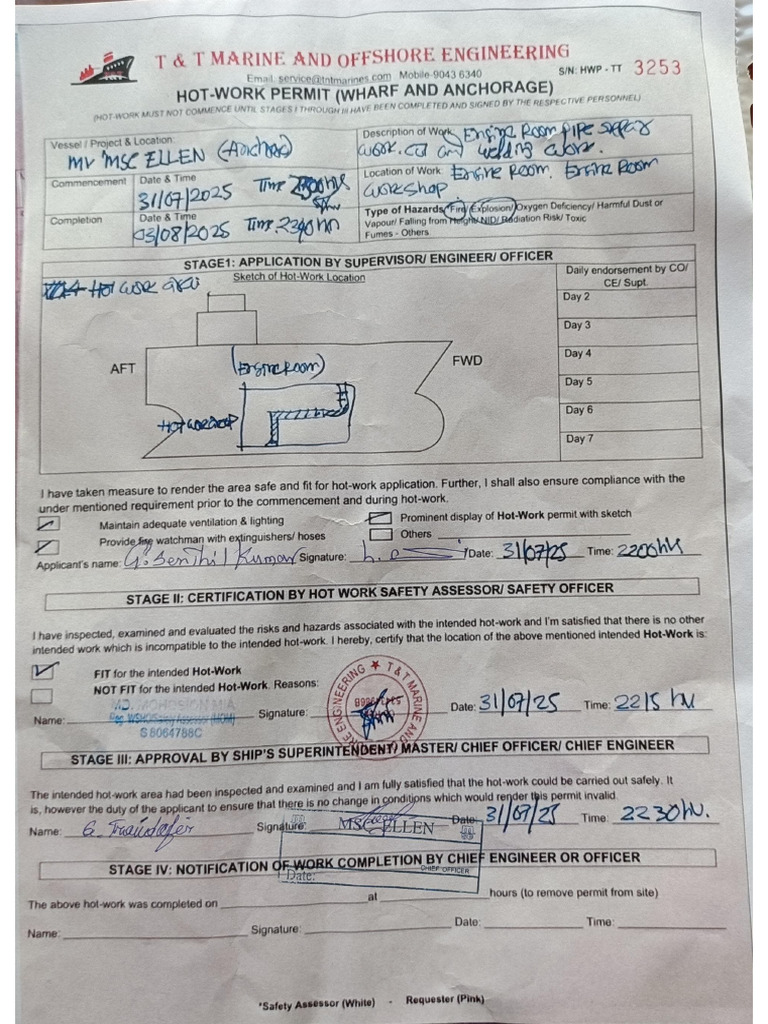 T & T MARINE AND OFFSHORE ENGINEERING
Email: service@tntmarines.com Mobile-9043 6340
S/N: HWP - TT 3253
HOT-WORK PERMIT (WHARF AND ANCHORAGE)
(HOT-WORK MUST NOT COMMENCE UNTIL STAGES I THROUGH III HAVE BEEN COMPLETED AND SIGNED BY THE RESPECTIVE PERSONNEL)
Vessel / Project & Location:
MV MSC ELLEN
Description of Work: Engine Room pipe repair
work. cut and welding work.
Commencement Date & Time
31/07/2025 Time 2300 hrs
Location of Work: Engine Room. Engine Room
workshop
Completion Date & Time
03/08/2025 Time 2300 hr
Type of Hazards: Fire/ Explosion/ Oxygen Deficiency/ Harmful Dust or
Vapour/ Falling from Height/ NID/ Radiation Risk/ Toxic
Fumes - Others
STAGE1: APPLICATION BY SUPERVISOR/ ENGINEER/ OFFICER
Sketch of Hot-Work Location
Hot work
AFT
(Engine Room)
FWD
Daily endorsement by CO/
CE/ Supt.
Day 2
Day 3
Day 4
Day 5
Day 6
Day 7
I have taken measure to render the area safe and fit for hot-work application. Further, I shall also ensure compliance with the
under mentioned requirement prior to the commencement and during hot-work.
Maintain adequate ventilation & lighting
Prominent display of Hot-Work permit with sketch
Provide fire watchman with extinguishers/ hoses
Others
Applicant's name: G. Senthil Kumar Signature: Date: 31/07/25 Time: 2200 hrs
STAGE II: CERTIFICATION BY HOT WORK SAFETY ASSESSOR/ SAFETY OFFICER
I have inspected, examined and evaluated the risks and hazards associated with the intended hot-work and I'm satisfied that there is no other
intended work which is incompatible to the intended hot-work. I hereby, certify that the location of the above mentioned intended Hot-Work is:
FIT for the intended Hot-Work
NOT FIT for the intended Hot-Work. Reasons:
MD. MOHOSION MIA
Reg. WSHO/Safety Assessor (MOM)
S8064788C
Name: Signature: Date: 31/07/25 Time: 2215 hr
T & T MARINE AND ENGINEERING
STAGE III: APPROVAL BY SHIP'S SUPERINTENDENT/ MASTER/ CHIEF OFFICER/ CHIEF ENGINEER
The intended hot-work area had been inspected and examined and I am fully satisfied that the hot-work could be carried out safely. It
is, however the duty of the applicant to ensure that there is no change in conditions which would render this permit invalid.
Name: Signature: Date: 31/07/25 Time: 2230 hr.
MSC ELLEN
CHIEF OFFICER
Date:
STAGE IV: NOTIFICATION OF WORK COMPLETION BY CHIEF ENGINEER OR OFFICER
The above hot-work was completed on at hours (to remove permit from site)
Name: Signature: Date: Time:
*Safety Assessor (White) - Requester (Pink)